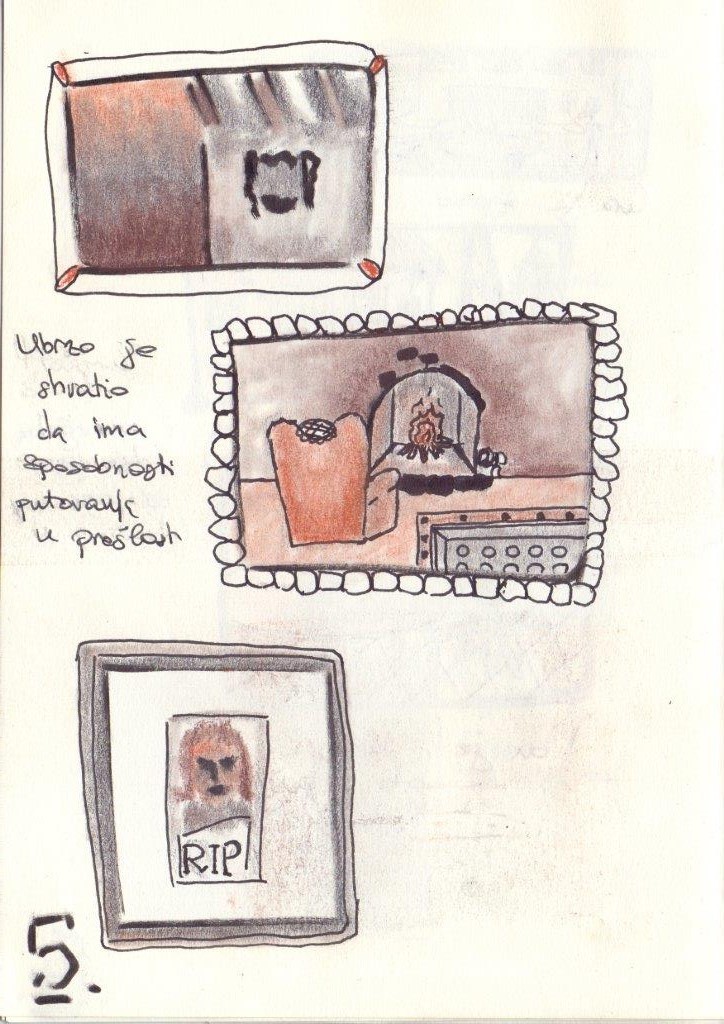 Ubrzo je
shvatio
da ima
sposobnosti
putovanja
u prošlost
RIP
5.